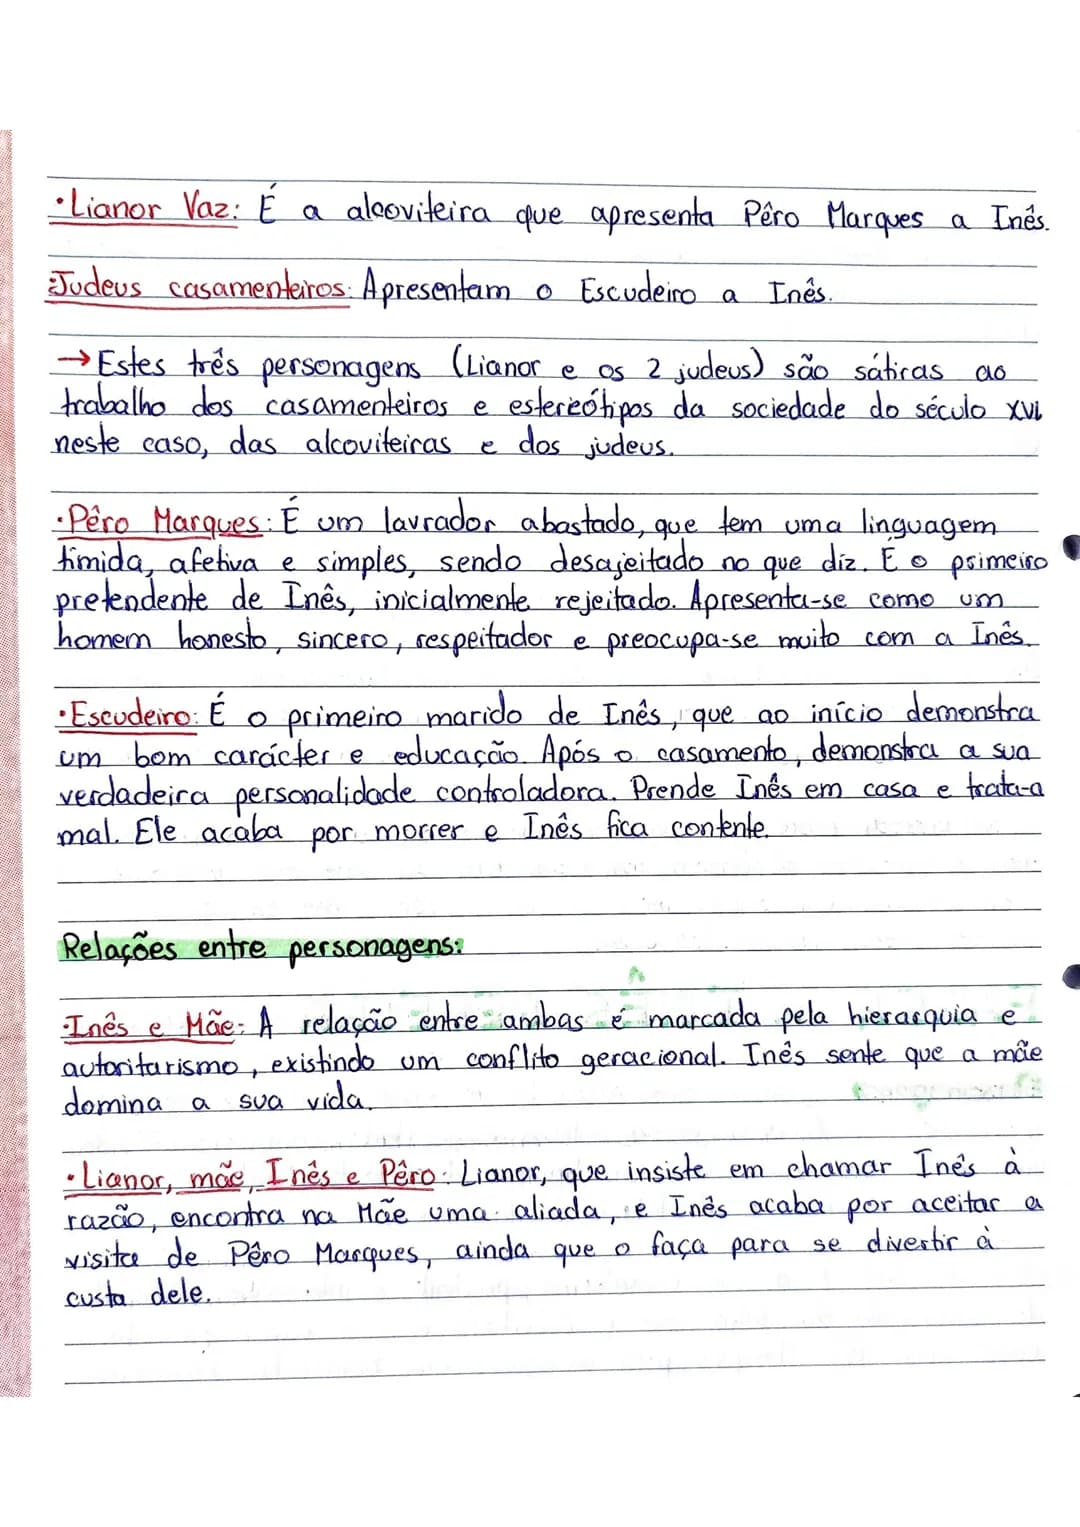 •Lianor Vaz: É a alcoviteira que apresenta Pêro Marques a Inês.
•Judeus casamenteiros: Apresentam o Escudeiro a Inês.
→Estes três personagens (Lianor e os 2 judeus) são sátiras ao
trabalho dos casamenteiros e estereótipos da sociedade do século XVI
neste caso, das alcoviteiras e dos judeus.
•Pêro Marques: É um lavrador abastado, que tem uma linguagem
tímida, afetiva e simples, sendo desajeitado no que diz. É o primeiro
pretendente de Inês, inicialmente rejeitado. Apresenta-se como um
homem honesto, sincero, respeitador e preocupa-se muito com a Inês.
•Escudeiro: É o primeiro marido de Inês, que ao início demonstra
um bom carácter e educação. Após o casamento, demonstra a sua
verdadeira personalidade controladora. Prende Inês em casa e trata-a
mal. Ele acaba por morrer e Inês fica contente.
Relações entre personagens:
•Inês e Mãe: A relação entre ambas é marcada pela hierarquia e
autoritarismo, existindo um conflito geracional. Inês sente que a mãe
domina a sua vida.
•Lianor, mãe, Inês e Pêro: Lianor, que insiste em chamar Inês à
razão, encontra na Mãe uma aliada, e Inês acaba por aceitar a
visita de Pêro Marques, ainda que o faça para se divertir à
custa dele.